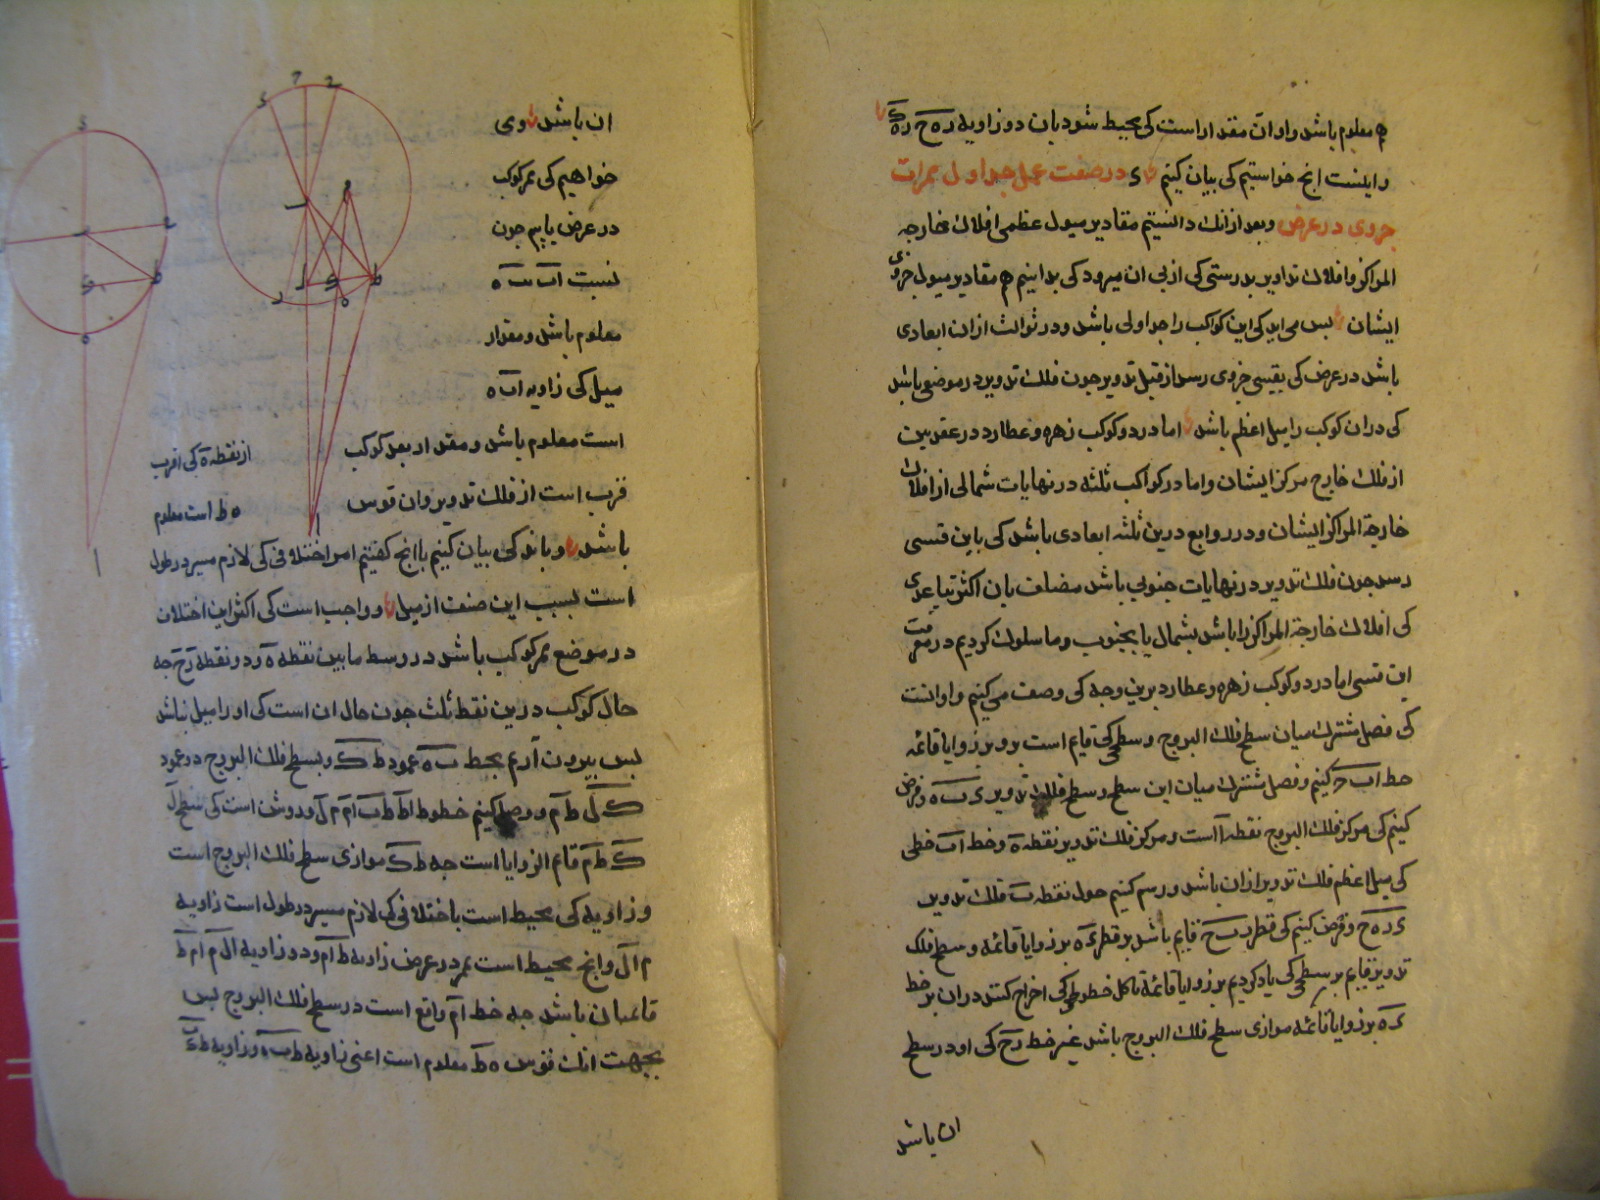 هم معلوم باشد واو ان مقدار است کی محیط شود بان دو زاویه ده ح ده ک
و اینست انچ خواستیم کی بیان کنیم ی در صنعت عمل جداول ممرات
جزوی در عرض و بعد از انک دانستیم مقادیر میول عظمی افلاک خارجه
المراکز و افلاک تداویر بدرستی کی از پی ان میرود کی بدانیم هم مقادیر میول جزوی
ایشان پس می اید کی این کواکب را جداولی باشد و در ثوالث ازان ابعادی
باشد در عرض کی بقسی جزوی رسد از قبل تدویر چون فلک تدویر در موضعی باشد
کی دران کوکب را میل اعظم باشد اما در دو کوکب زهره و عطارد در عقدتین
از فلک خارج مرکز ایشان و اما در کواکب ثلثه در نهایات شمالی از افلاک
خارجة المراکز ایشان و در روابع درین ثلثه ابعادی باشد کی باین قسی
رسد چون فلک تدویر در نهایات جنوبی باشد مضاف بان اکثر تباعدی
کی افلاک خارجة المراکز را باشد بشمال یا بجنوب وما سلوک کردیم در معرفت
این قسی اما در دو کوکب زهره و عطارد برین وجه کی وصف می کنیم و او انست
کی فصل مشترک میان سطح فلک البروج و سطحی کی قایم است برو بر زوایا قائمه
خط اب ح کنیم و فصل مشترک میان این سطح و سطح فلک تدویر ی ب ه و فرض
کنیم کی مرکز فلک البروج نقطه ا است و مرکز فلک تدویر نقطه ه و خط اب خطی
کی میل اعظم فلک تدویر ازان باشد و رسم کنیم حول نقطه ب فلک تدویر
ی د ه ح و فرض کنیم کی قطر د ب ح قایم باشد بر قطر ی ه بر زوایا قائمه و سطح فلک
تدویر قایم بر سطحی کی یاد کردیم بر زوایا قائمه تا کل خطوطی کی اخراج کنند دران بر خط
ی ه بر زوایا قائمه موازی سطح فلک البروج باشد غیر خط د ح کی او در سطح
ان باشد
ان باشد وی
خواهیم کی ممر کوکب
در عرض یابیم چون
نسبت اب ب ه
معلوم باشد و مقدار
میل کی زاویه اب ه
است معلوم باشد و مقدار بعد کوکب از نقطه ه کی اقرب
قرب است از فلک تدویر وان قوس ه ط است معلوم
باشد و باید کی بیان کنیم با انچ گفتیم امر اختلافی کی لازم مسیر در طول
است بسبب این صنف از میل و واجب است کی اکثر این اختلاف
در موضع ممر کوکب باشد در وسط ما بین نقطه ه د و نقطه د ح چه
حال کوکب درین نقط ثلث چون حال ان است کی او را میل نباشد
پس بیرون آریم بخط ب ه عمود ط ک و بسطح فلک البروج دو عمود
ک ل ط م و وصل کنیم خطوط اط ط ب ام م ل و روشن است کی سطح ل
ک ط م قایم الزوایا است چه ط ک موازی سطح فلک البروج است
و زاویه کی محیط است باختلافی کی لازم مسیر در طول است زاویه
م ال وانچ محیط است بممر در عرض زاویه ط ام و دو زاویه ال م ام ط
قائمتان باشد چه خط ام واقع است در سطح فلک البروج پس
بجهت انک قوس ه ط معلوم است اعنی زاویه ط ب ه و زاویه ط ک ب